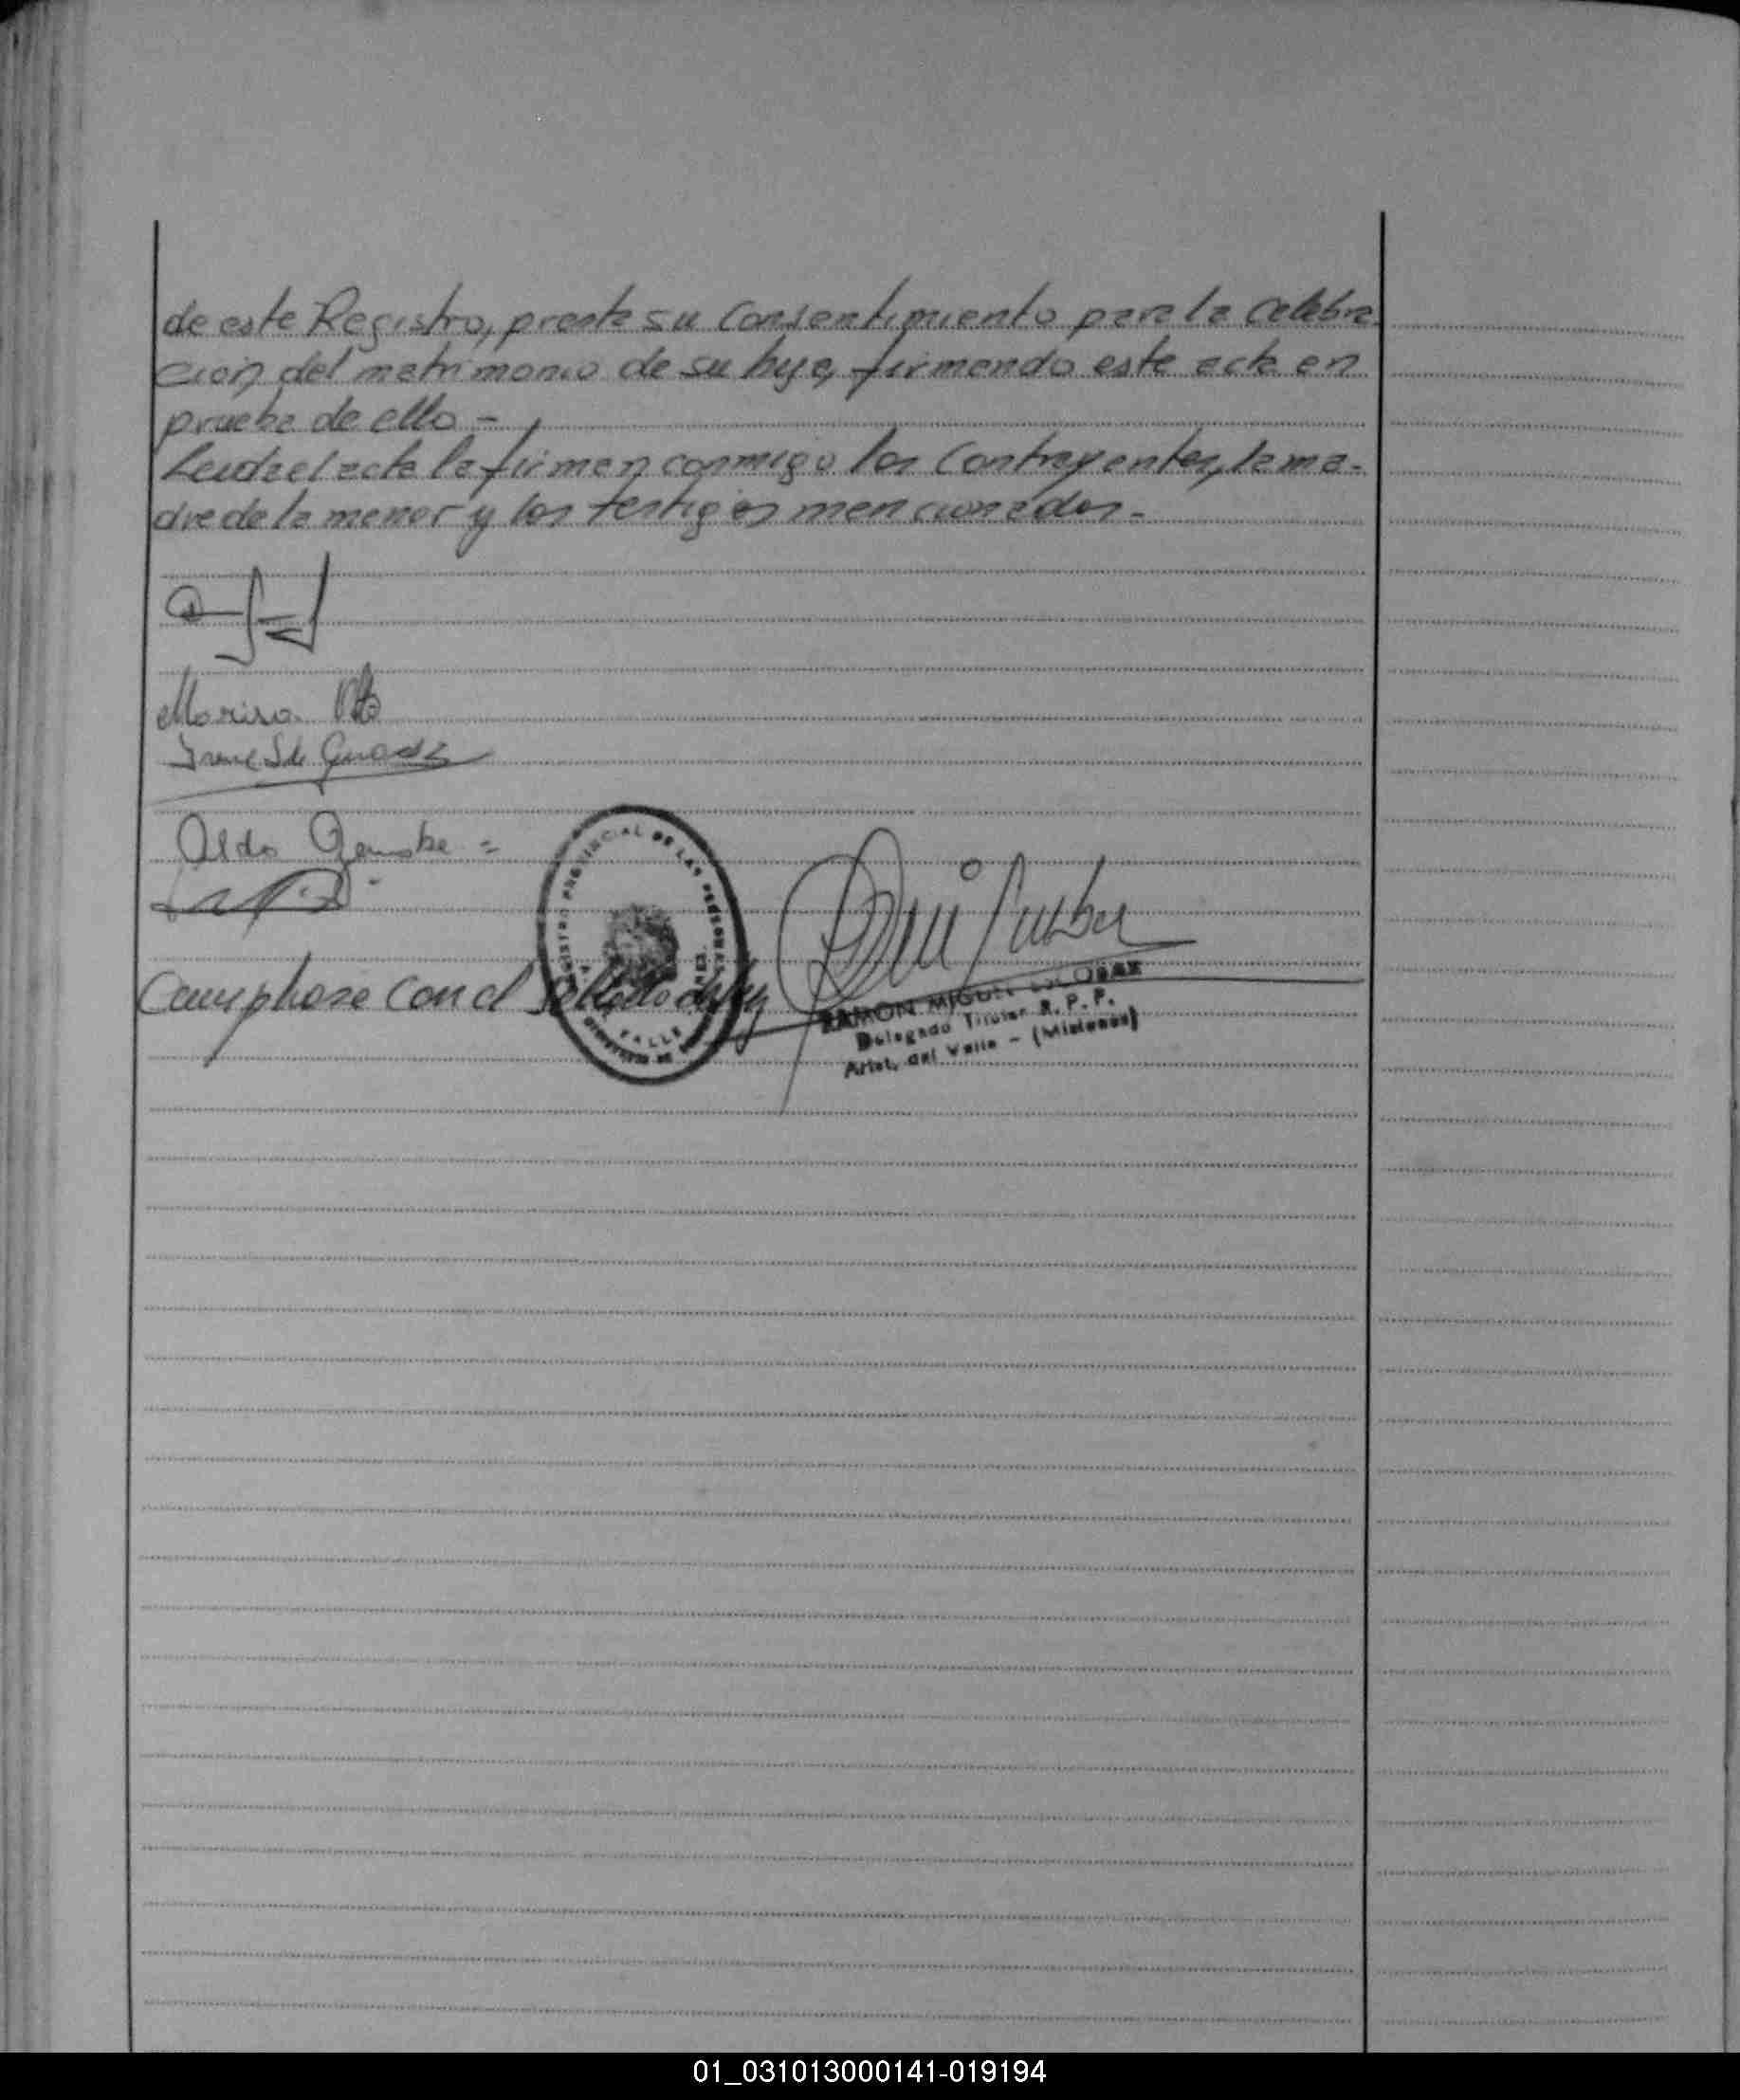 de este Registro, presta su Consentimiento para la Celebra-
ción del matrimonio de su hija, firmando este acta en
prueba de ello -
Leida el acta la firman conmigo los Contrayentes, la ma-
dre de la menor y los testigos mencionados.-
Marisa
Irene S. de
Aldo
REGISTRO PROVINCIAL DE LAS PERSONAS
VALLE
Cumplase con el Sellado de ley
RAMON MIGUEL
Delegado Titular R. P. P.
Arist. del Valle - (Misiones)
01_031013000141-019194